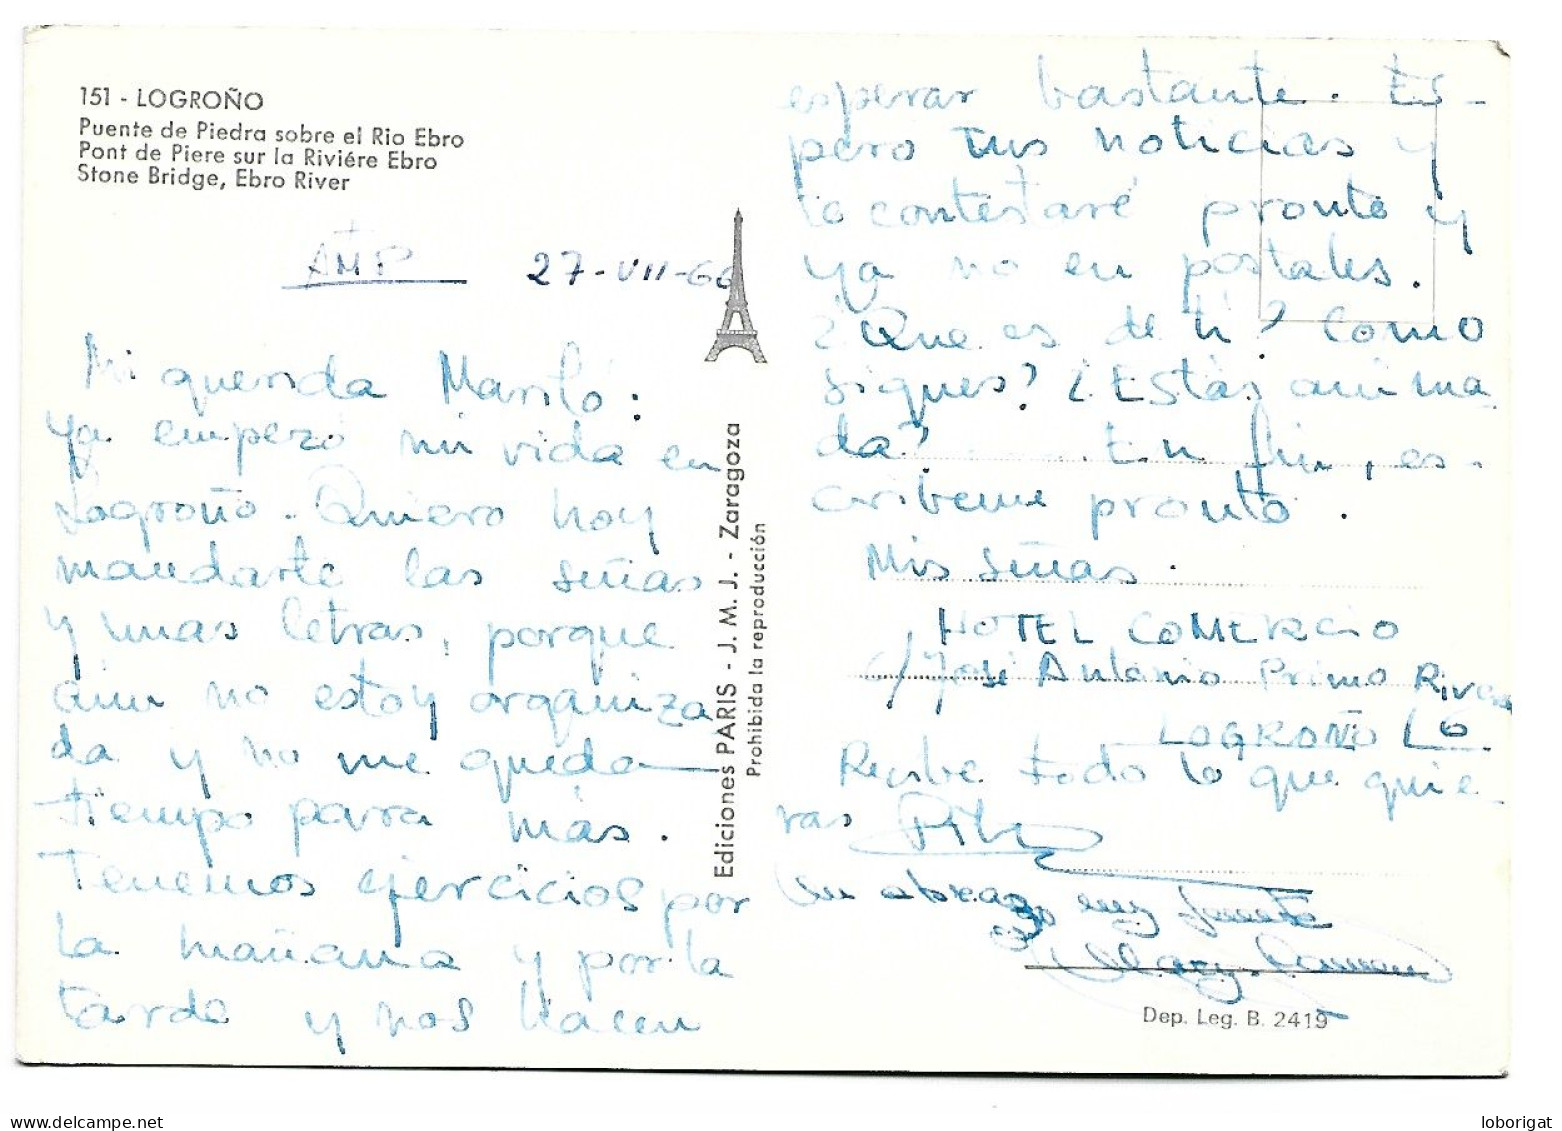 151 - LOGROÑO
Puente de Piedra sobre el Rio Ebro
Pont de Piere sur la Riviére Ebro
Stone Bridge, Ebro River
AMP 27-VII-66
Mi querida Mariló:
ya empezó mi vida en
Logroño. Quiero hoy
mandarte las señas
y unas letras, porque
aún no estoy organiza
da y no me queda
tiempo para más.
Tenemos ejercicios por
la mañana y por la
tarde y nos hacen
Ediciones PARIS - J. M. J. - Zaragoza
Prohibida la reproducción
esperar bastante. Es-
pero tus noticias y
te contestaré pronto y
ya no en postales.
¿Que es de ti? Como
sigues? ¿Estás anima
da? En fin, es-
cribeme pronto.
Mis señas.
HOTEL COMERCIO
c/ José Antonio Primo Rivera
LOGROÑO
Recibe todo lo que quie-
ras Pili
Un abrazo muy fuerte
Mary Carmen
Dep. Leg. B. 2419
loborigat